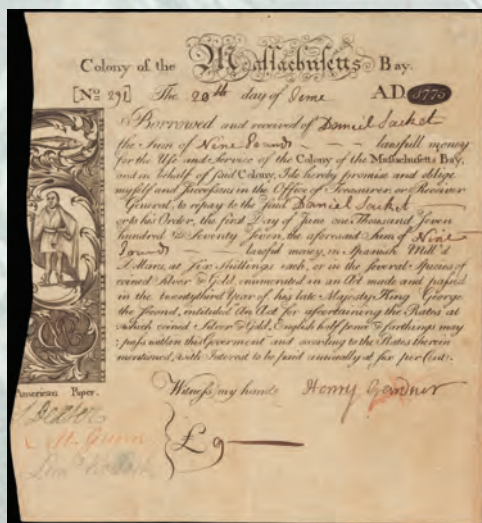 Colony of the Massachusetts Bay.
[No 291] The 20th day of June AD. 1775
Borrowed and received of Daniel Sacket
the Sum of Nine Pounds — lawfull money
for the Use and Service of the Colony of the Massachusetts Bay,
and in behalf of said Colony, I do hereby promise and oblige
myself and Successors in the Office of Treasurer, or Receiver
General, to repay to the said Daniel Sacket
or to his Order, the first Day of June one Thousand Seven
hundred & Seventy Seven, the aforesaid Sum of Nine
Pounds — lawful money, in Spanish Mill'd
Dollars, at Six Shillings each, or in the several Species of
coined Silver & Gold, enumerated in an Act made and passed
in the twenty third Year of his late Majesty King George
the Second, intitled An Act for ascertaining the Rates at
which coined Silver & Gold, English half pence & farthings may
pass within this Goverment and according to the Rates therein
mentioned, with Interest to be paid annually at six per Cent.
American Paper.
Witness my hand Henry Gardner
£ 9